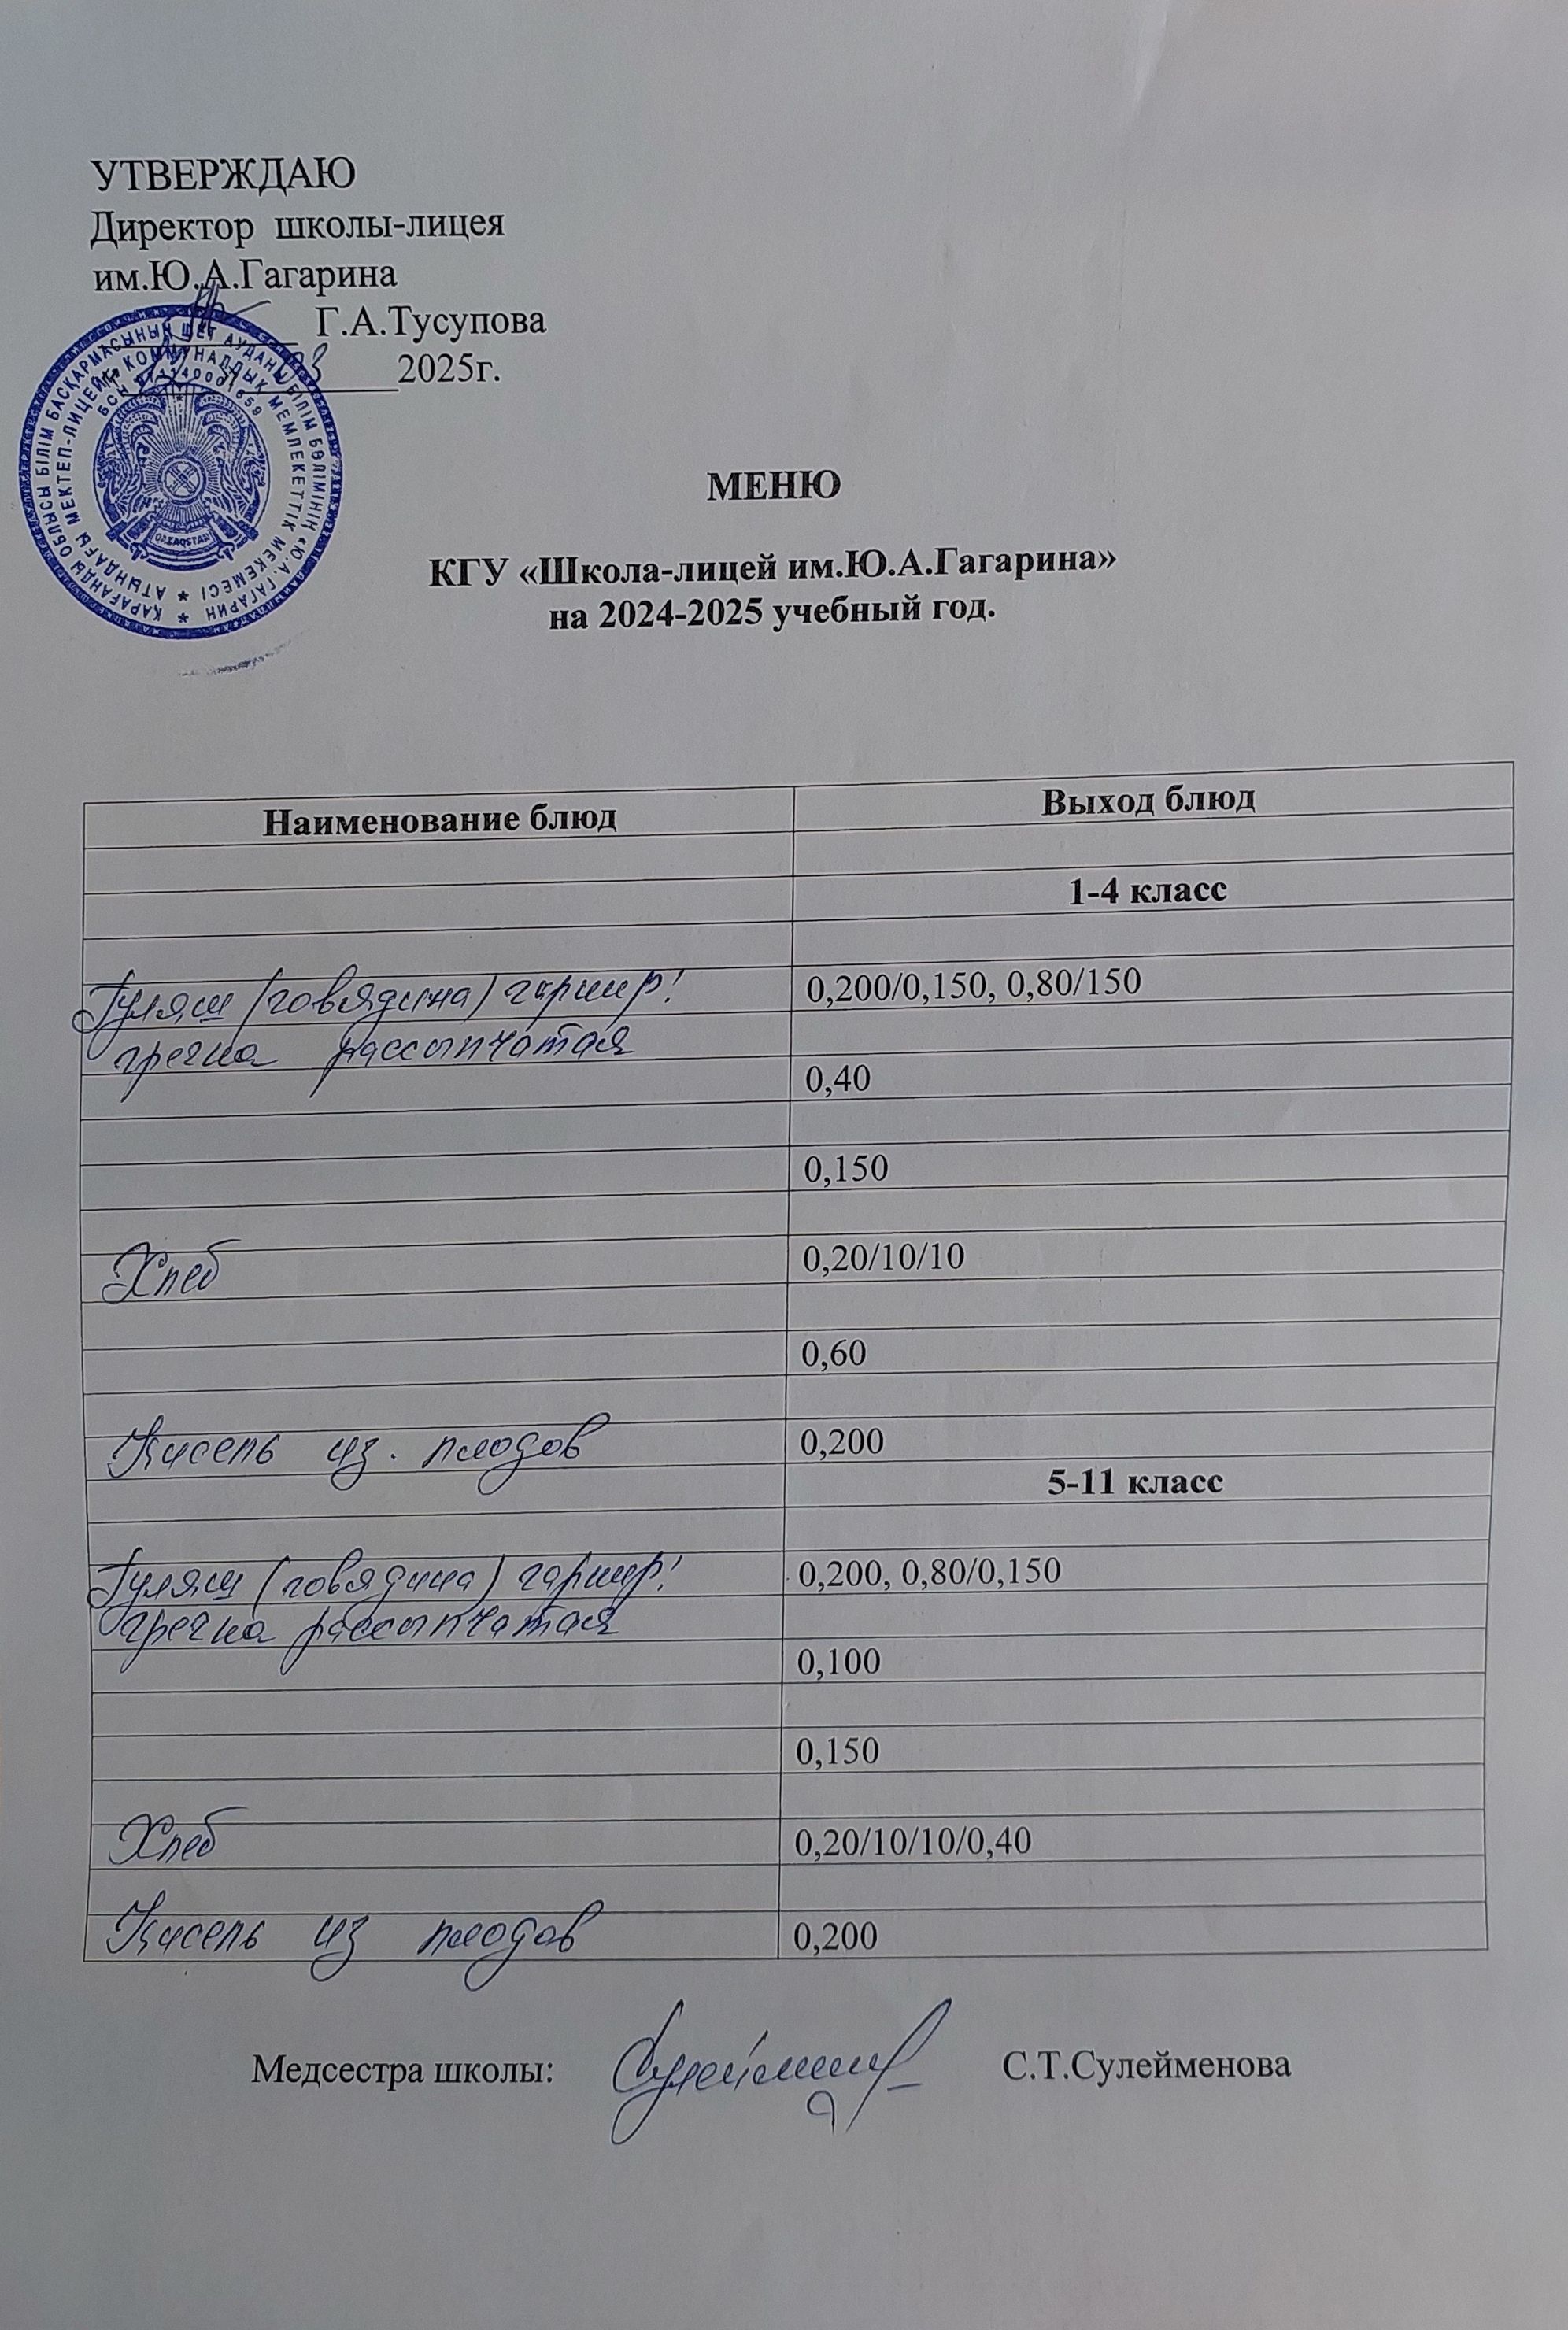 УТВЕРЖДАЮ
Директор школы-лицея
им.Ю.А.Гагарина
Г.А.Тусупова
03 2025г.
ҚАРАҒАНДЫ ОБЛЫСЫ БІЛІМ БАСҚАРМАСЫНЫҢ ШЕТ АУДАНЫ БІЛІМ БӨЛІМІНІҢ «Ю.А. ГАГАРИН
АТЫНДАҒЫ МЕКТЕП-ЛИЦЕЙІ» КОММУНАЛДЫҚ МЕМЛЕКЕТТІК МЕКЕМЕСІ
БСН
QAZAQSTAN
МЕНЮ
КГУ «Школа-лицей им.Ю.А.Гагарина»
на 2024-2025 учебный год.
Наименование блюд Выход блюд
1-4 класс
Гуляш (говядина) гарнир: 0,200/0,150, 0,80/150
гречка рассыпчатая
0,40
0,150
Хлеб 0,20/10/10
0,60
Кисель из плодов 0,200
5-11 класс
Гуляш (говядина) гарнир: 0,200, 0,80/0,150
гречка рассыпчатая
0,100
0,150
Хлеб 0,20/10/10/0,40
Кисель из плодов 0,200
Медсестра школы: С.Т.Сулейменова